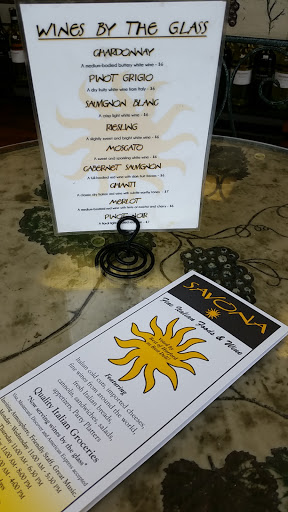 WINES BY THE GLASS
CHARDONNAY
A medium-bodied buttery white wine - $6
PINOT GRIGIO
A dry fruity white wine from Italy - $6
SAUVIGNON BLANC
A crisp light white wine - $6
RIESLING
A slightly sweet and bright white wine - $6
MOSCATO
A sweet and sparkling white wine - $6
CABERNET SAUVIGNON
A full-bodied red wine with
CHIANTI
A classic dry Italian red with subtle earthy tones - $7
MERLOT
A medium-bodied red wine with hints of cherry - $6
PINOT NOIR
SAVONA
Fine Italian Foods & Wine
Voted by
Best of
Featuring
Italian cold cuts, imported cheeses,
fine wines from around the world,
fresh Italian breads,
cannolis, sandwiches, salads,
appetizers, Party Platters
Quality Italian Groceries
"Now serving wines by the glass"
Visa, Mastercard, Discover and American Express accepted
Atmosphere, Friendly Staff, Great Music,